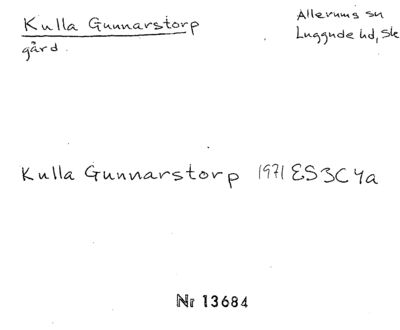 Kulla Gunnarstorp
gård.
Allerums sn
Luggude hd, Sk
Kulla Gunnarstorp 1971 ES3C4a
Nr 13684